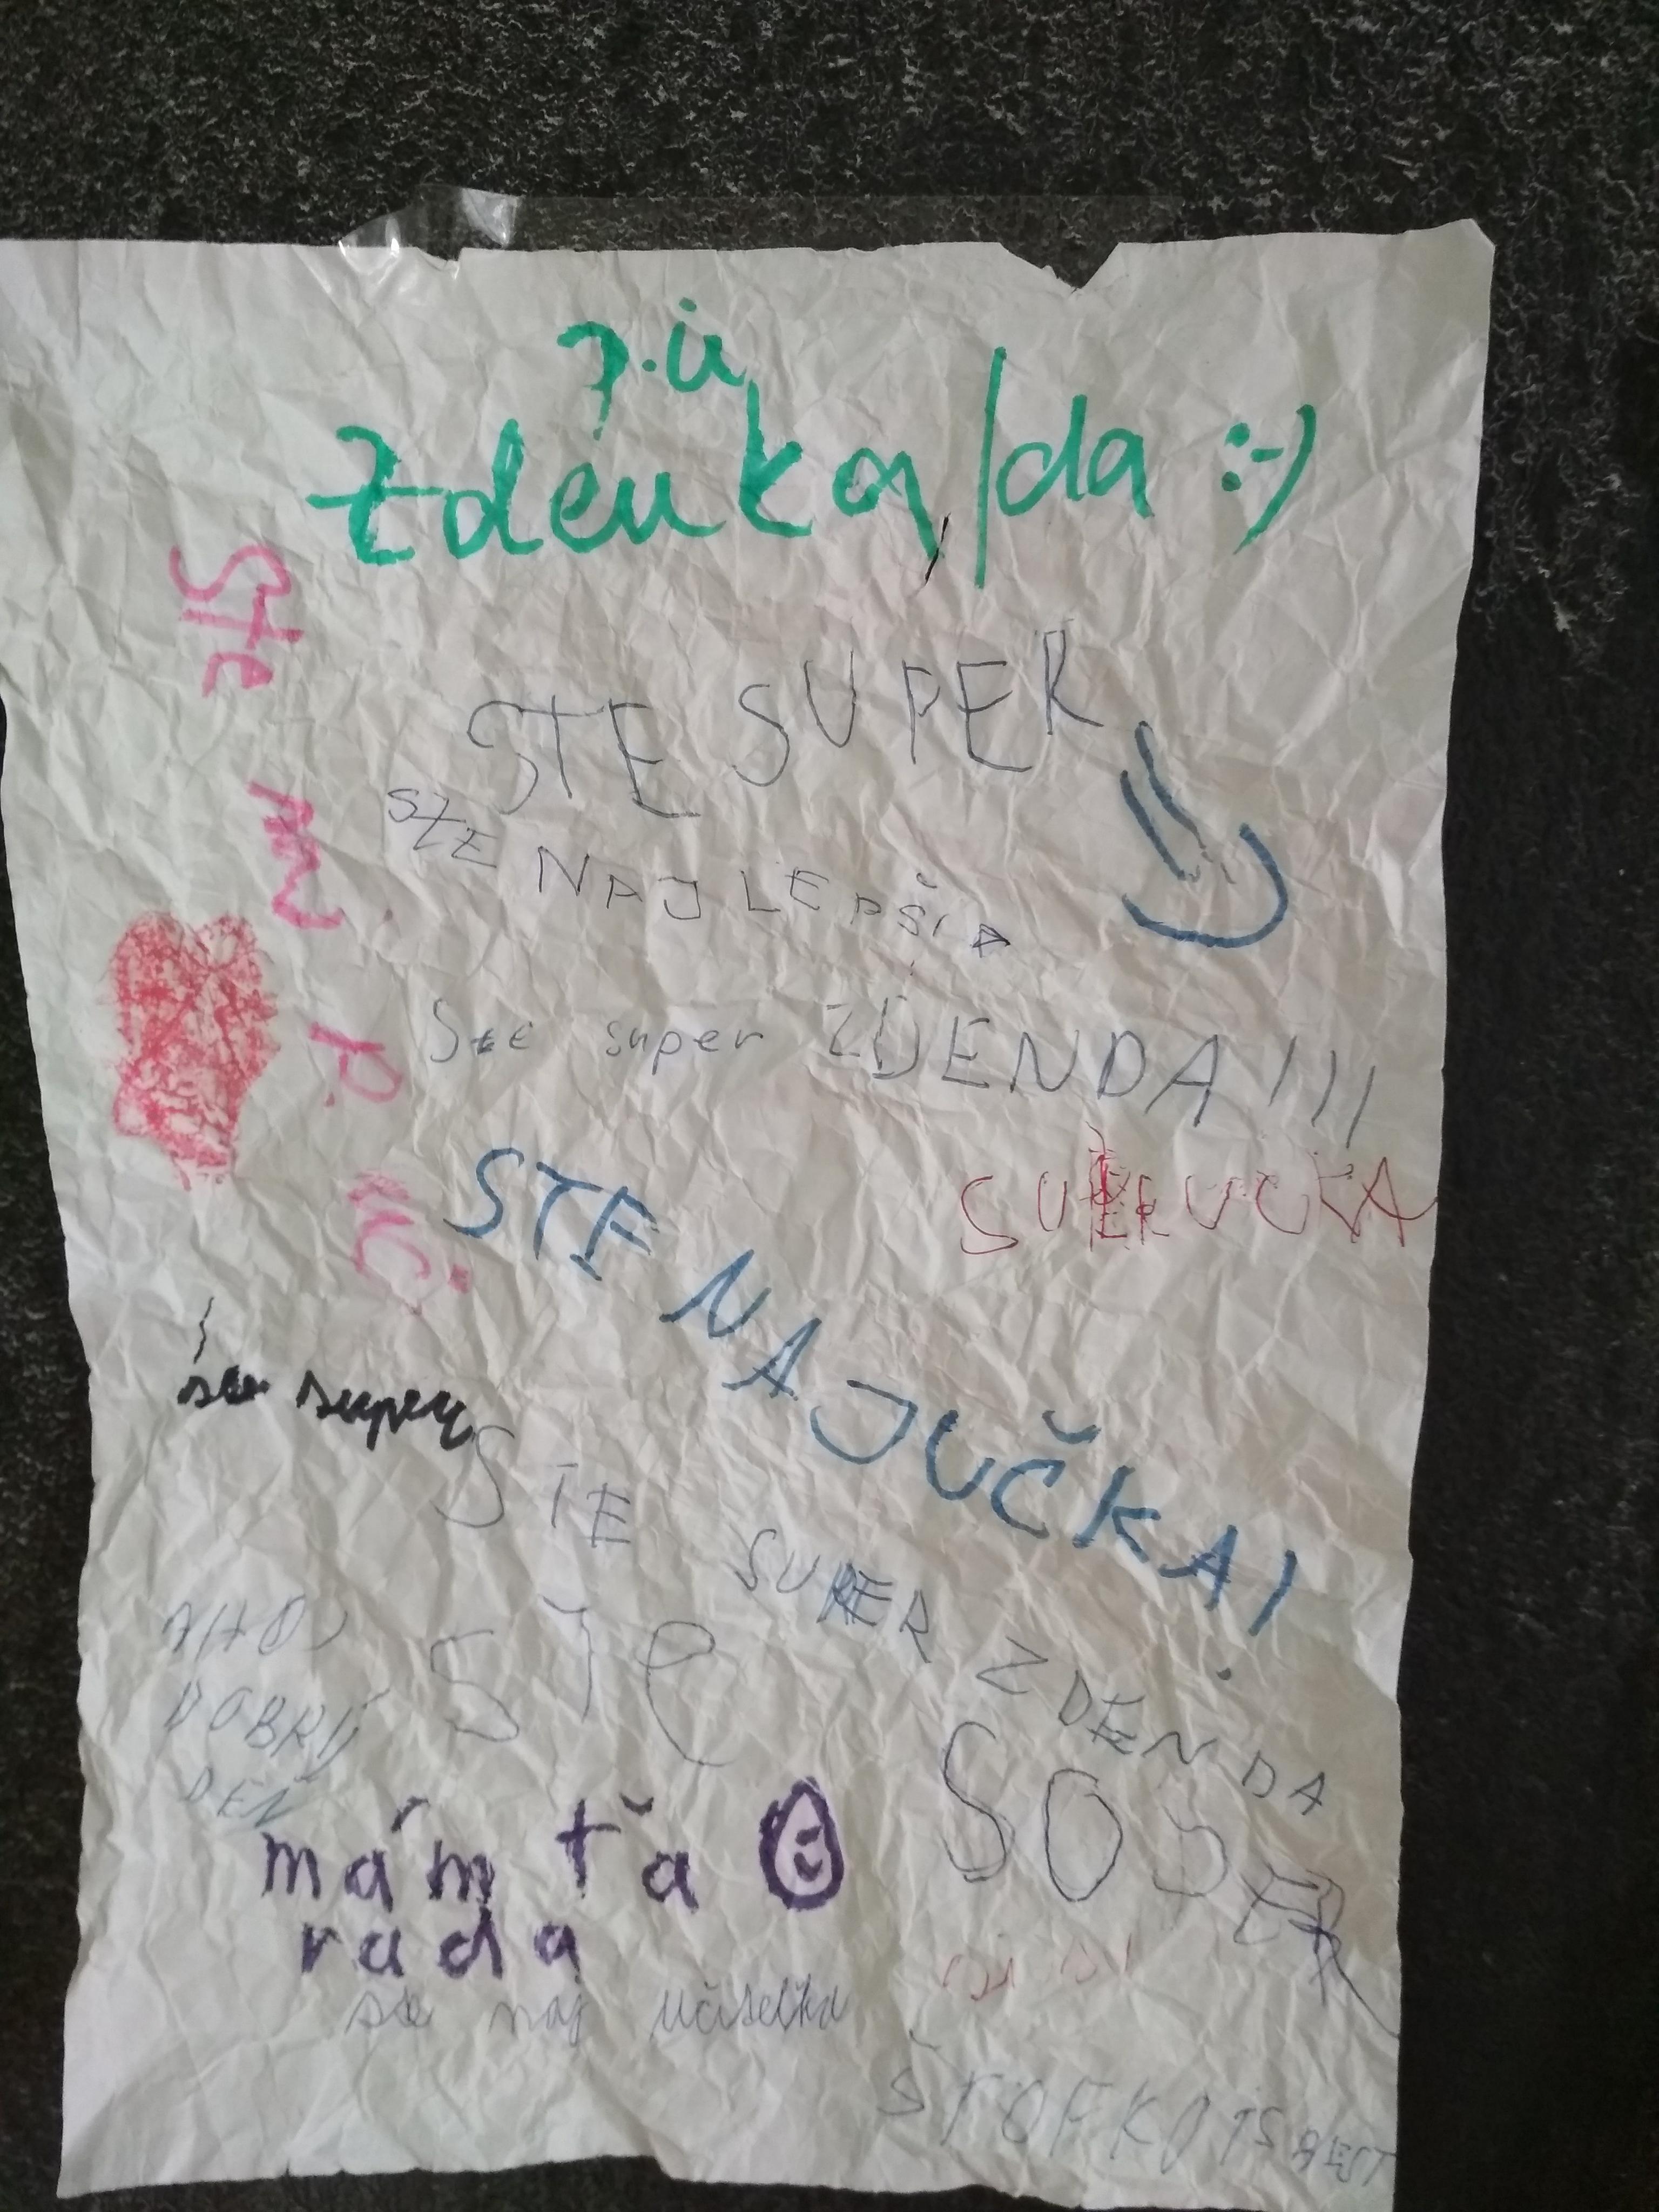 p.u
Zdenka/da :-)
STE SUPER
STE NAJLEPŠIA
Ste super ZDENDA!!!
SUPER UČKA
STE NAJ UČKA!
Ste
N
P.
UČ
ste super
STE SUPER ZDENDA
AHOJ
DOBRÝ
DEŇ
STE
SOS
ER
mám ťa
rada
ste naj učiteľka
ŠTOFKO IS BEST